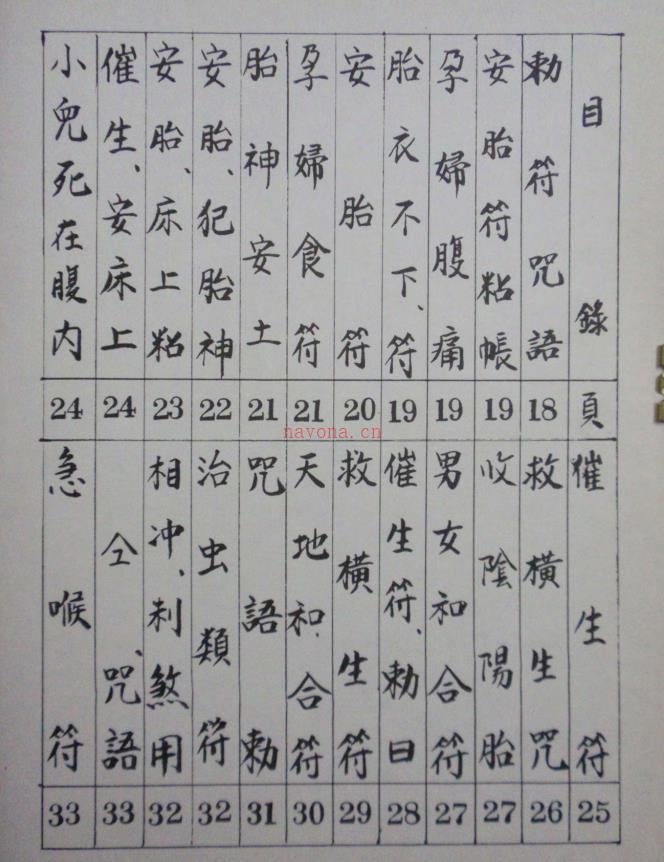 目錄 頁
勅符咒語 18
安胎符粘帳 19
孕婦腹痛 19
胎衣不下、符 19
安胎符 20
孕婦食符 21
胎神安土 21
安胎、犯胎神 22
安胎、床上粘 23
催生、安床上 24
小兒死在腹内 24
催生符 25
救橫生咒 26
收陰陽胎 27
男女和合符 27
催生符、勅曰 28
救橫生符 29
天地和、合符 30
咒語勅 31
治虫類符 32
相冲、刺煞用 32
仝、咒語 33
急喉符 33
nayona.cn